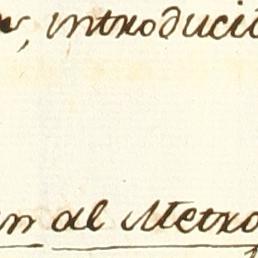 , introduci
al Metro